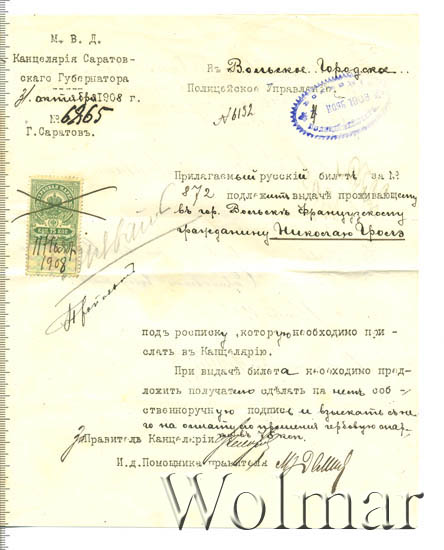 М. В. Д.
Канцелярія Саратов-
скаго Губернатора
31 октября 1908 г.
№ 6265
Г. Саратовъ.
Въ Вольское Городское
Полицейское Управленіе.
№ 6132
Прилагаемый русскій билетъ за №
872 подлежитъ выдачѣ проживающему
въ гор. Вольскѣ Французскому
гражданину Николаю
1908
подъ росписку, которую необходимо при-
слать въ Канцелярію.
При выдачѣ билета необходимо пред-
ложить получателю сдѣлать на немъ соб-
ственноручную подпись и взыскать съ не-
го на оплату прошенія гербовую мар-
За Правитель Канцеляріи
И.д. Помощника Правителя
Wolmar